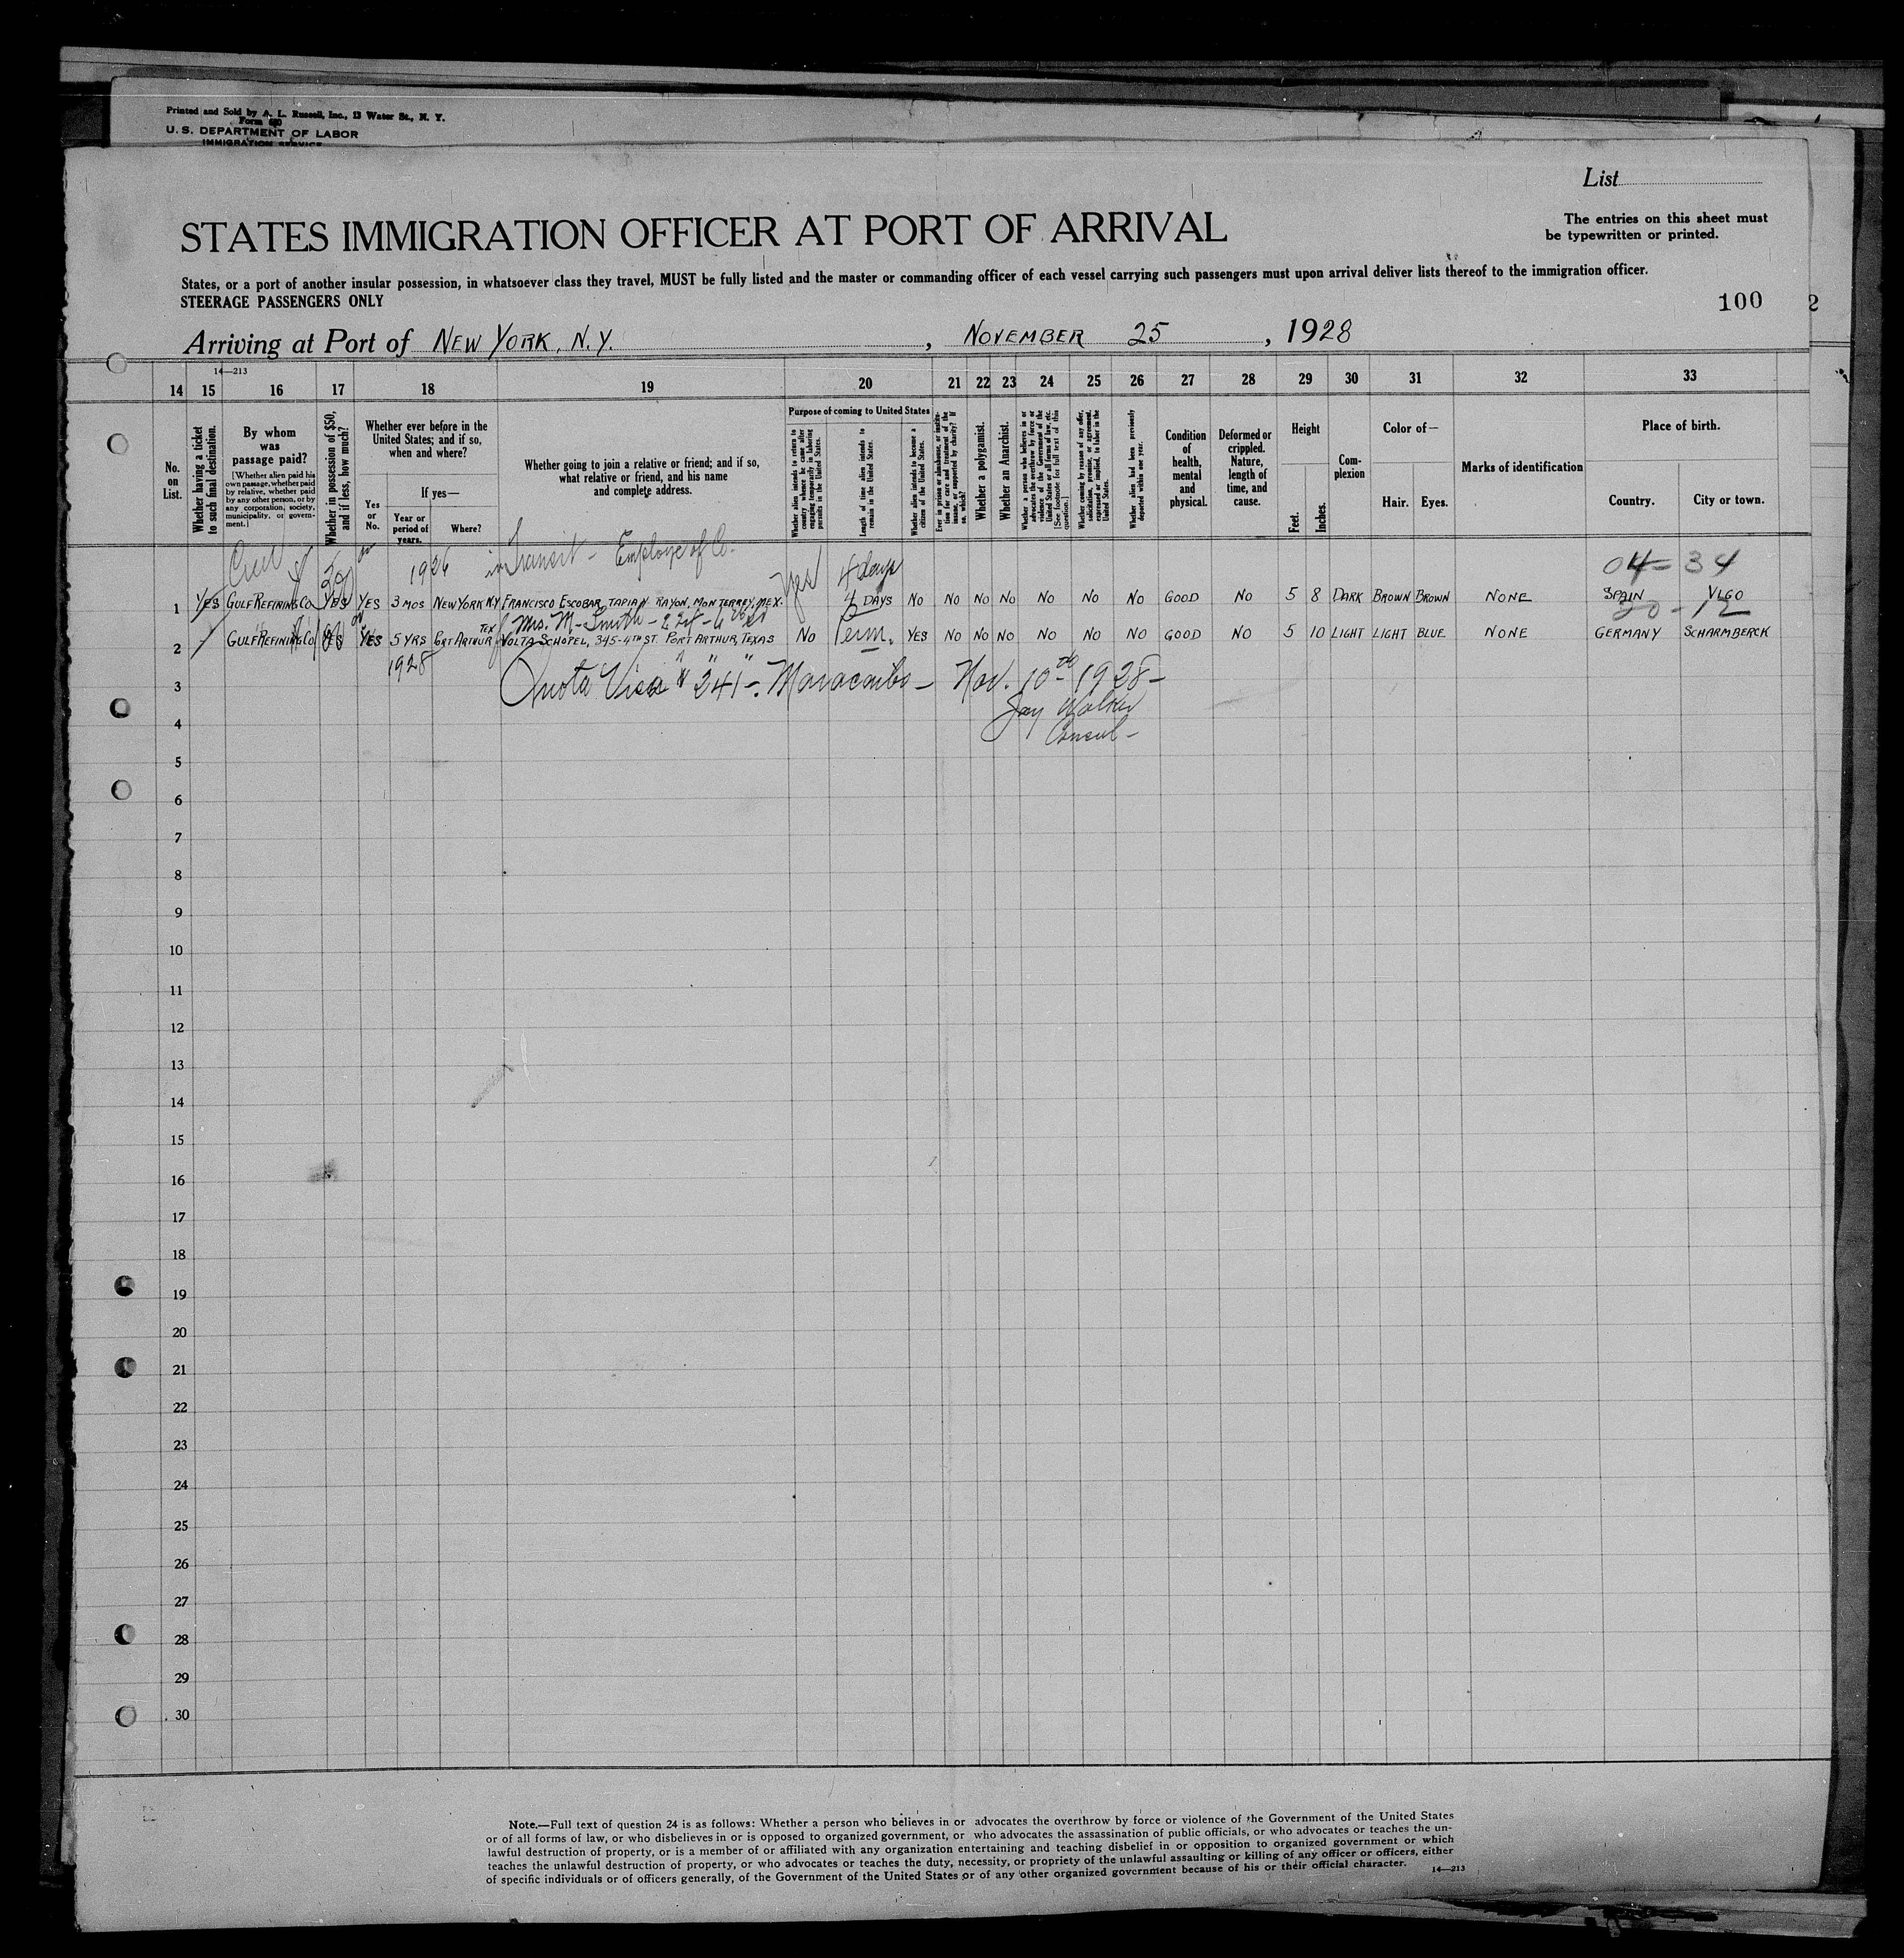 Printed and Sold by A. L. Russell, Inc., 13 Water St., N. Y.
Form 680
U. S. DEPARTMENT OF LABOR
IMMIGRATION SERVICE
List
STATES IMMIGRATION OFFICER AT PORT OF ARRIVAL
The entries on this sheet must
be typewritten or printed.
States, or a port of another insular possession, in whatsoever class they travel, MUST be fully listed and the master or commanding officer of each vessel carrying such passengers must upon arrival deliver lists thereof to the immigration officer.
STEERAGE PASSENGERS ONLY
100
2
Arriving at Port of NEW YORK, N.Y. , NOVEMBER 25 , 1928
14—213
14 15 16 17 18 19 20 21 22 23 24 25 26 27 28 29 30 31 32 33
No. on List.
Whether having a ticket to such final destination.
By whom was passage paid?
[Whether alien paid his own passage, whether paid by relative, whether paid by any other person, or by any corporation, society, municipality, or government.]
Whether in possession of $50, and if less, how much?
Whether ever before in the United States; and if so, when and where?
Yes or No.
If yes—
Year or period of years.
Where?
Whether going to join a relative or friend; and if so, what relative or friend, and his name and complete address.
Purpose of coming to United States
Whether alien intends to return to country whence he came after engaging temporarily in laboring pursuits in the United States.
Length of time alien intends to remain in the United States.
Whether alien intends to become a citizen of the United States.
Ever in prison or almshouse, or institution for care and treatment of the insane, or supported by charity? If so, which?
Whether a polygamist.
Whether an Anarchist.
Whether a person who believes in or advocates the overthrow by force or violence of the Government of the United States or all forms of law, etc. [See footnote for full text of this question.]
Whether coming by reason of any offer, solicitation, promise, or agreement, expressed or implied, to labor in the United States.
Whether alien had been previously deported within one year.
Condition of health, mental and physical.
Deformed or crippled. Nature, length of time, and cause.
Height
Feet. Inches.
Complexion
Color of—
Hair. Eyes.
Marks of identification
Place of birth.
Country. City or town.
30 1926 in Transit - Employe of Co. yes 4 days 04-34
1 YES GULF REFINING CO YES YES 3 MOS NEW YORK NY FRANCISCO ESCOBAR, TAPIA Y RAYON, MONTERREY, MEX. DAYS NO NO NO NO NO NO NO GOOD NO 5 8 DARK BROWN BROWN NONE SPAIN VIGO
Mrs. M. Smith 20-12
2 GULF REFINING CO YES YES 5 YRS PORT ARTHUR TEX VOLTA SCHOPEL, 345-4TH ST. PORT ARTHUR, TEXAS NO Perm. YES NO NO NO NO NO NO GOOD NO 5 10 LIGHT LIGHT BLUE NONE GERMANY SCHARMBERCK
1928
3 Quota Visa # "241" - Maracaibo - Nov. 10th 1928 -
Jay Walker
4 Consul -
5
6
7
8
9
10
11
12
13
14
15
16
17
18
19
20
21
22
23
24
25
26
27
28
29
30
Note.—Full text of question 24 is as follows: Whether a person who believes in or advocates the overthrow by force or violence of the Government of the United States
or of all forms of law, or who disbelieves in or is opposed to organized government, or who advocates the assassination of public officials, or who advocates or teaches the un-
lawful destruction of property, or is a member of or affiliated with any organization entertaining and teaching disbelief in or opposition to organized government or which
teaches the unlawful destruction of property, or who advocates or teaches the duty, necessity, or propriety of the unlawful assaulting or killing of any officer or officers, either
of specific individuals or of officers generally, of the Government of the United States or of any other organized government because of his or their official character.
14—213